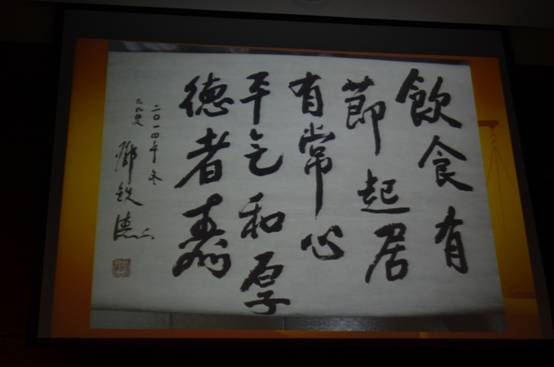 飲食有
節起居
有常心
平气和厚
德者壽
二〇一四年冬
鄧鉄涛